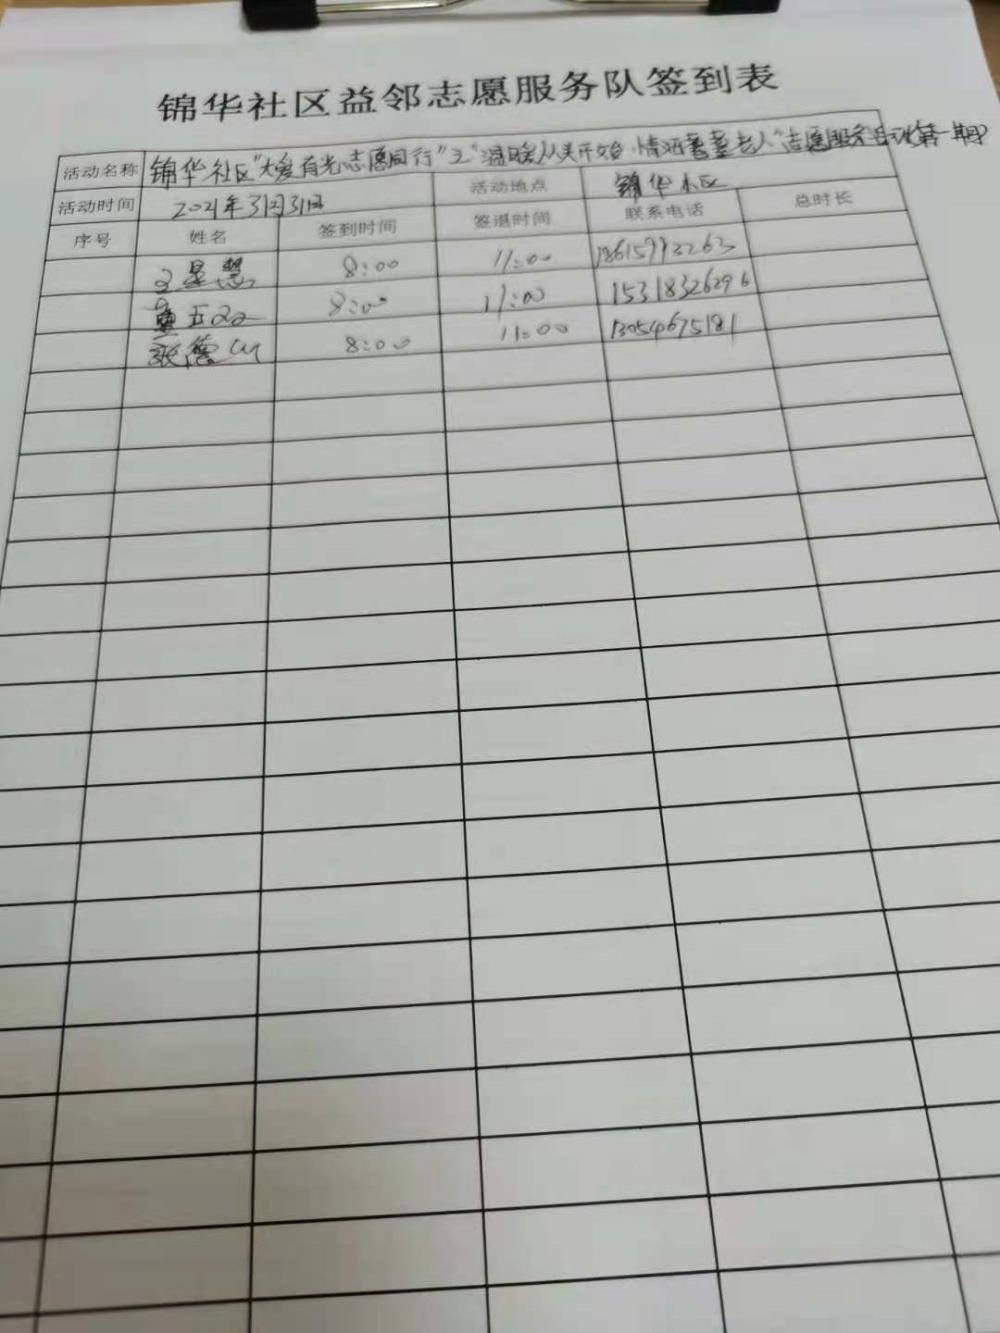 锦华社区益邻志愿服务队签到表
活动名称 锦华社区"大爱有光志愿同行"之"温暖从关开始·情涵耄耋老人"志愿服务活动(第一期)
活动时间 2021年3月31日 活动地点 锦华小区
序号 姓名 签到时间 签退时间 联系电话 总时长
8:00 11:00 18615993263
8:00 11:00 15318326296
张德山 8:00 11:00 13054675181